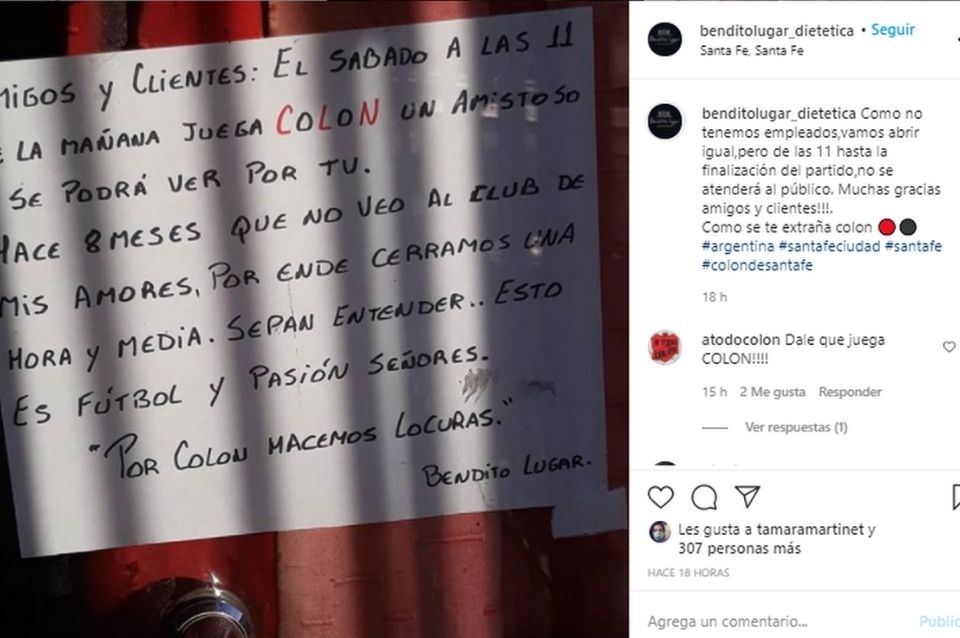 MIGOS Y CLIENTES: EL SABADO A LAS 11
LA MAÑANA JUEGA COLON UN AMISTOSO
SE PODRÁ VER POR TV.
HACE 8 MESES QUE NO VEO AL CLUB DE
MIS AMORES, POR ENDE CERRAMOS UNA
HORA Y MEDIA. SEPAN ENTENDER.. ESTO
ES FÚTBOL Y PASIÓN SEÑORES.
"POR COLON HACEMOS LOCURAS."
BENDITO LUGAR.
benditolugar_dietetica • Seguir
Santa Fe, Santa Fe
benditolugar_dietetica Como no
tenemos empleados,vamos abrir
igual,pero de las 11 hasta la
finalización del partido,no se
atenderá al público. Muchas gracias
amigos y clientes!!!.
Como se te extraña colon 🔴⚫
#argentina #santafeciudad #santafe
#colondesantafe
18 h
atodocolon Dale que juega
COLON!!!!
15 h 2 Me gusta Responder
Ver respuestas (1)
Les gusta a tamaramartinet y
307 personas más
HACE 18 HORAS
Agrega un comentario...
Public